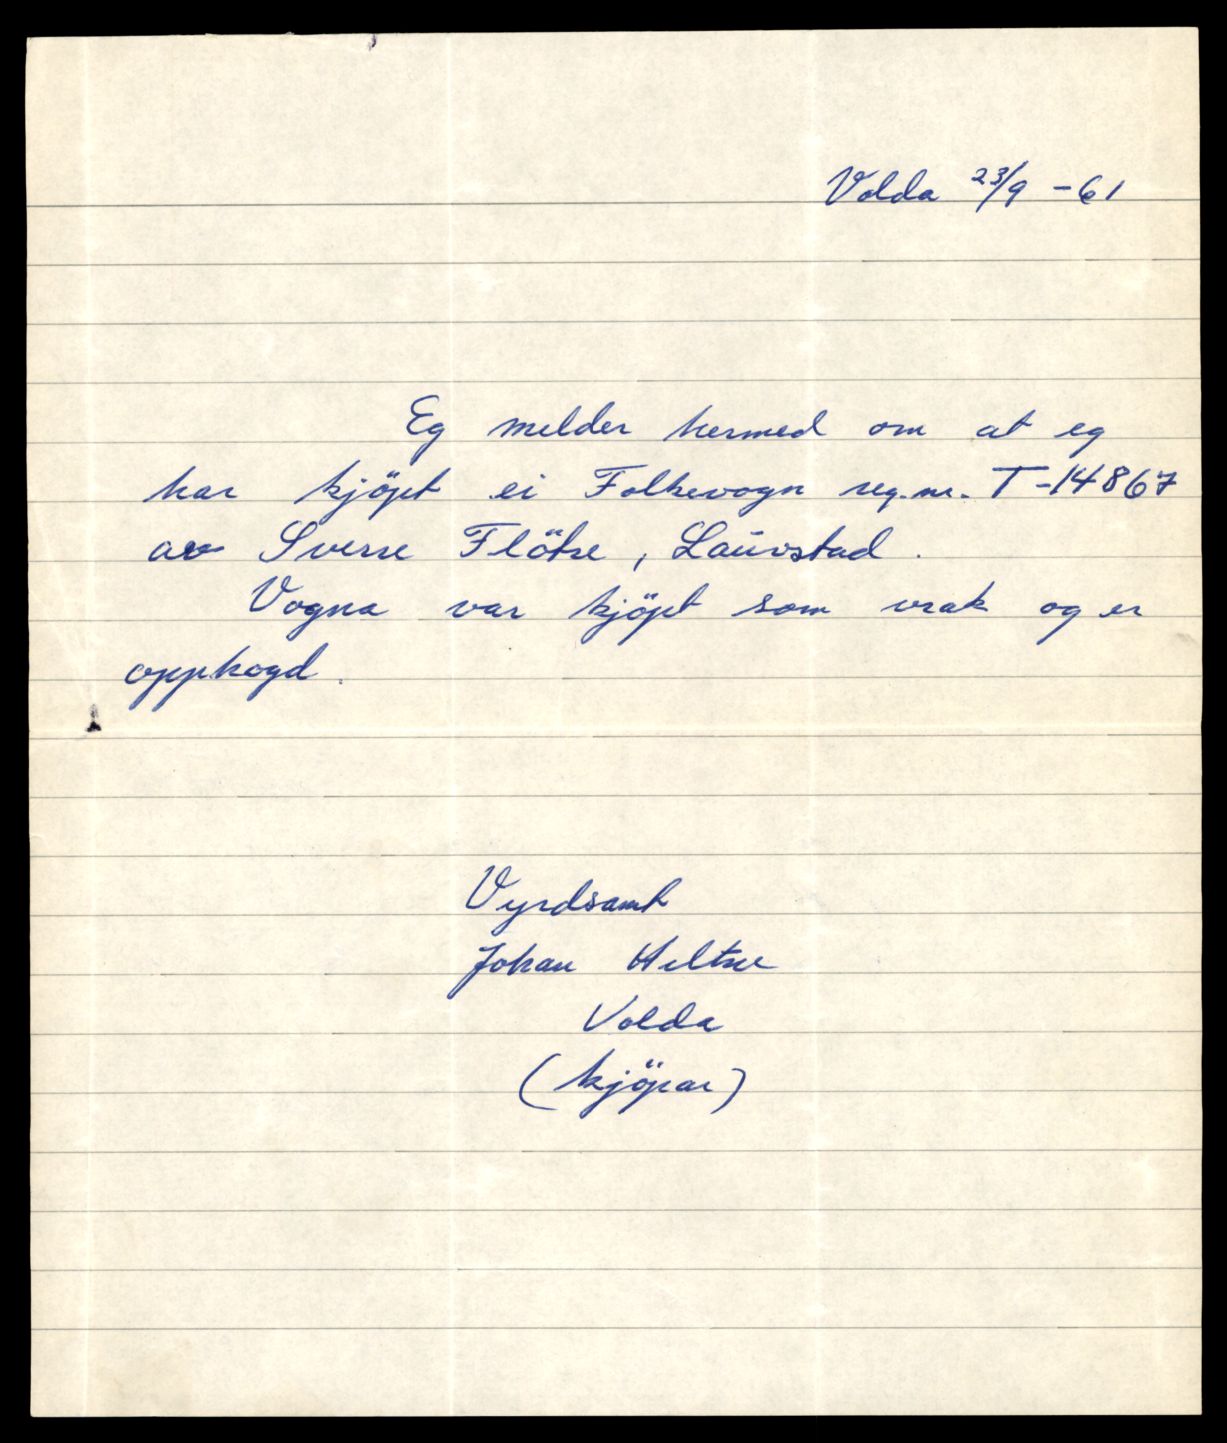 Volda 23/9 -61
Eg melder hermed om at eg
har kjöpt ei Folkevogn reg.nr. T-14867
av Sverre Flötre, Lauvstad.
Vogna var kjöpt som vrak og er
opphogd.
Vyrdsamt
Johan
Volda
(kjöpar)